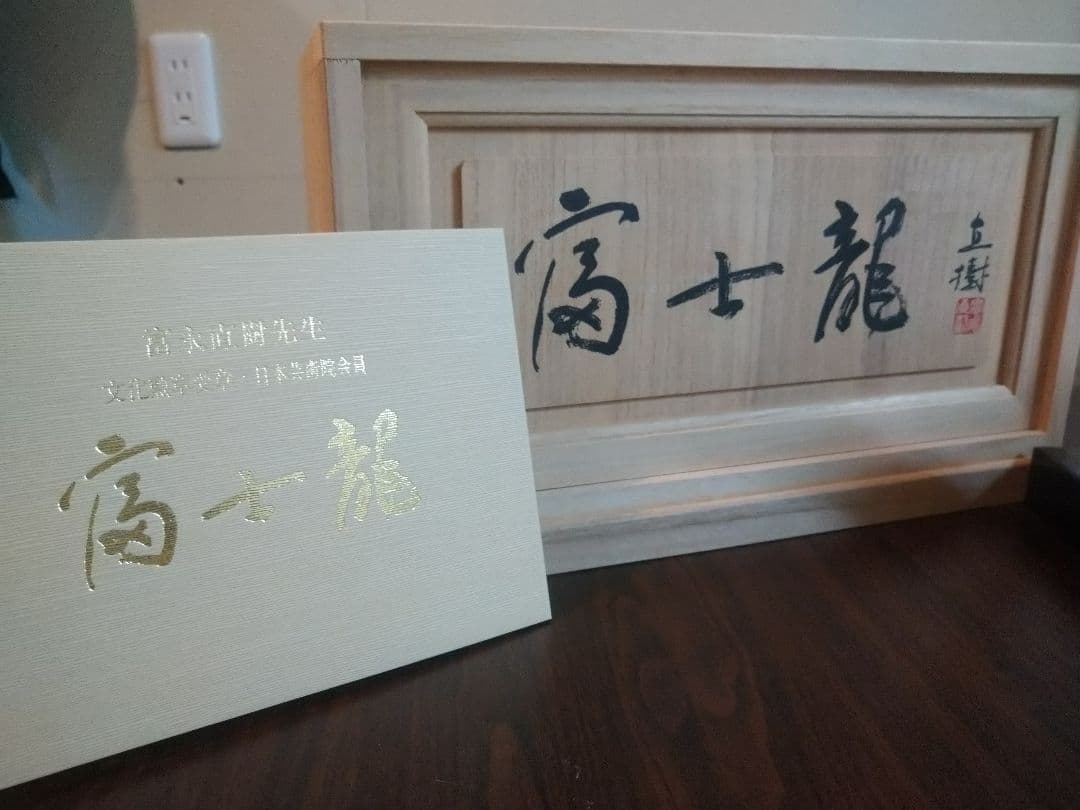 富永直樹先生
文化勲章受章・日本芸術院会員
富士龍
富士龍
直樹